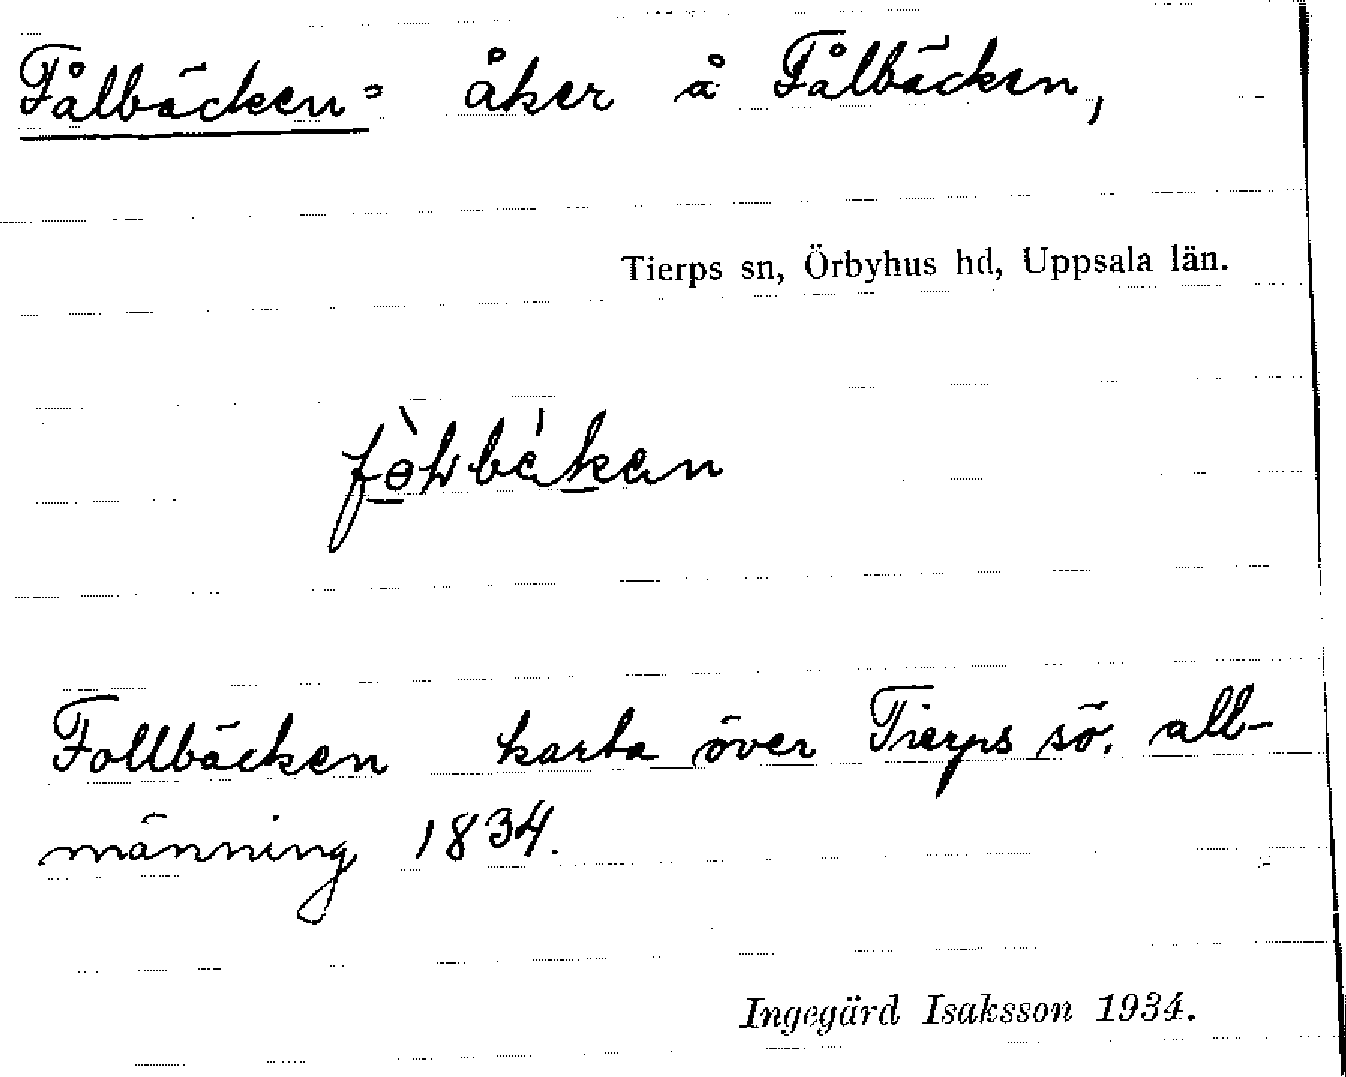 Fålbäcken = åker å Fålbäcken,
Tierps sn, Örbyhus hd, Uppsala län.
Follbäcken karta över Tierps sö. all-
männing 1834.
Ingegärd Isaksson 1934.